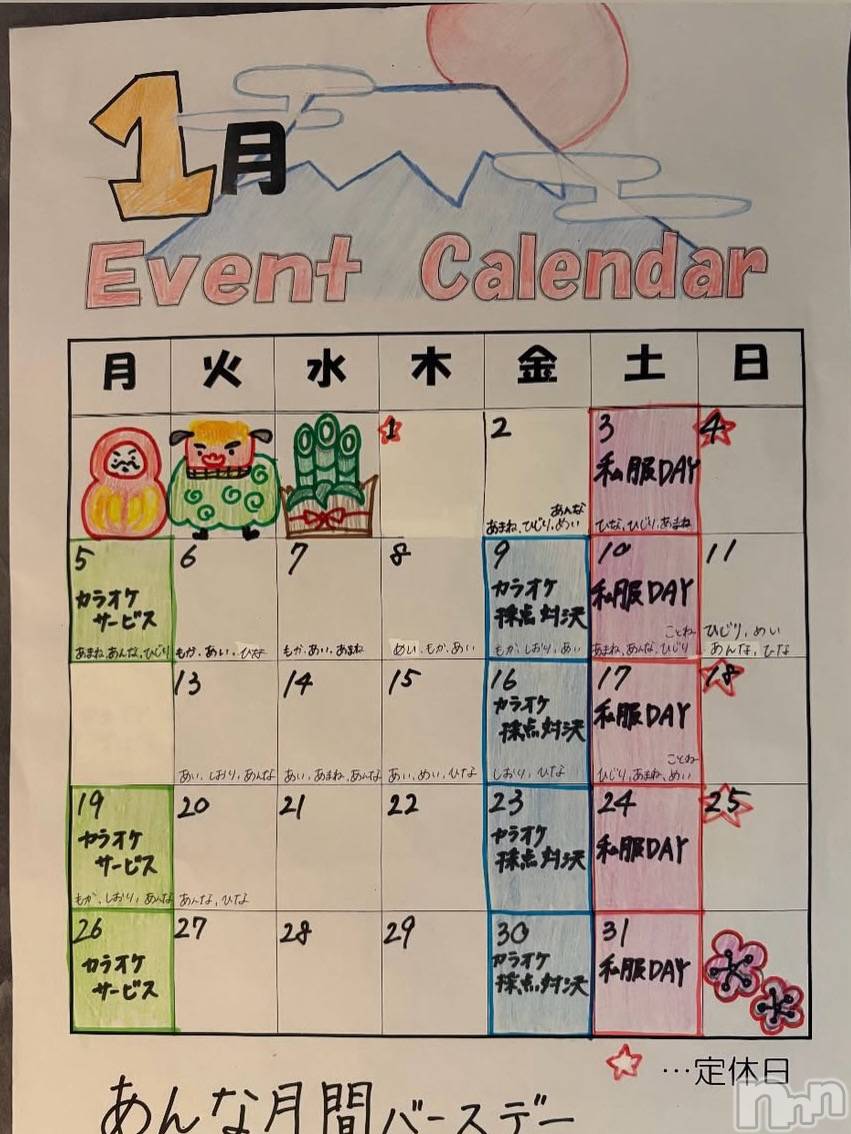 1月
Event Calendar
月 火 水 木 金 土 日
1
2
あんな
あまね、ひじり、めい
3
私服DAY
ひな、ひじり、あまね
4
5
カラオケ
サービス
あまね、あんな、ひじり
6
もか、あい、ひな
7
もか、あい、あまね
8
めい、もか、あい
9
カラオケ
採点対決
もか、しおり、あい
10
私服DAY
ことね
あまね、あんな、ひじり
11
ひじり、めい
あんな、ひな
13
あい、しおり、あんな
14
あい、あまね、あんな
15
あい、めい、ひな
16
カラオケ
採点対決
しおり、ひな
17
私服DAY
ことね
ひじり、あまね、めい
18
19
カラオケ
サービス
もか、しおり、あんな
20
あんな、ひな
21
22
23
カラオケ
採点対決
24
私服DAY
25
26
カラオケ
サービス
27
28
29
30
カラオケ
採点対決
31
私服DAY
…定休日
あんな月間バースデー
nnn